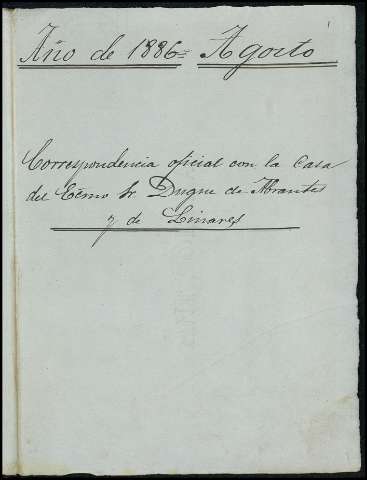 Año de 1886= Agosto
Correspondencia oficial con la Casa
del Ecmo Sr Duque de Abrantes
y de Linares